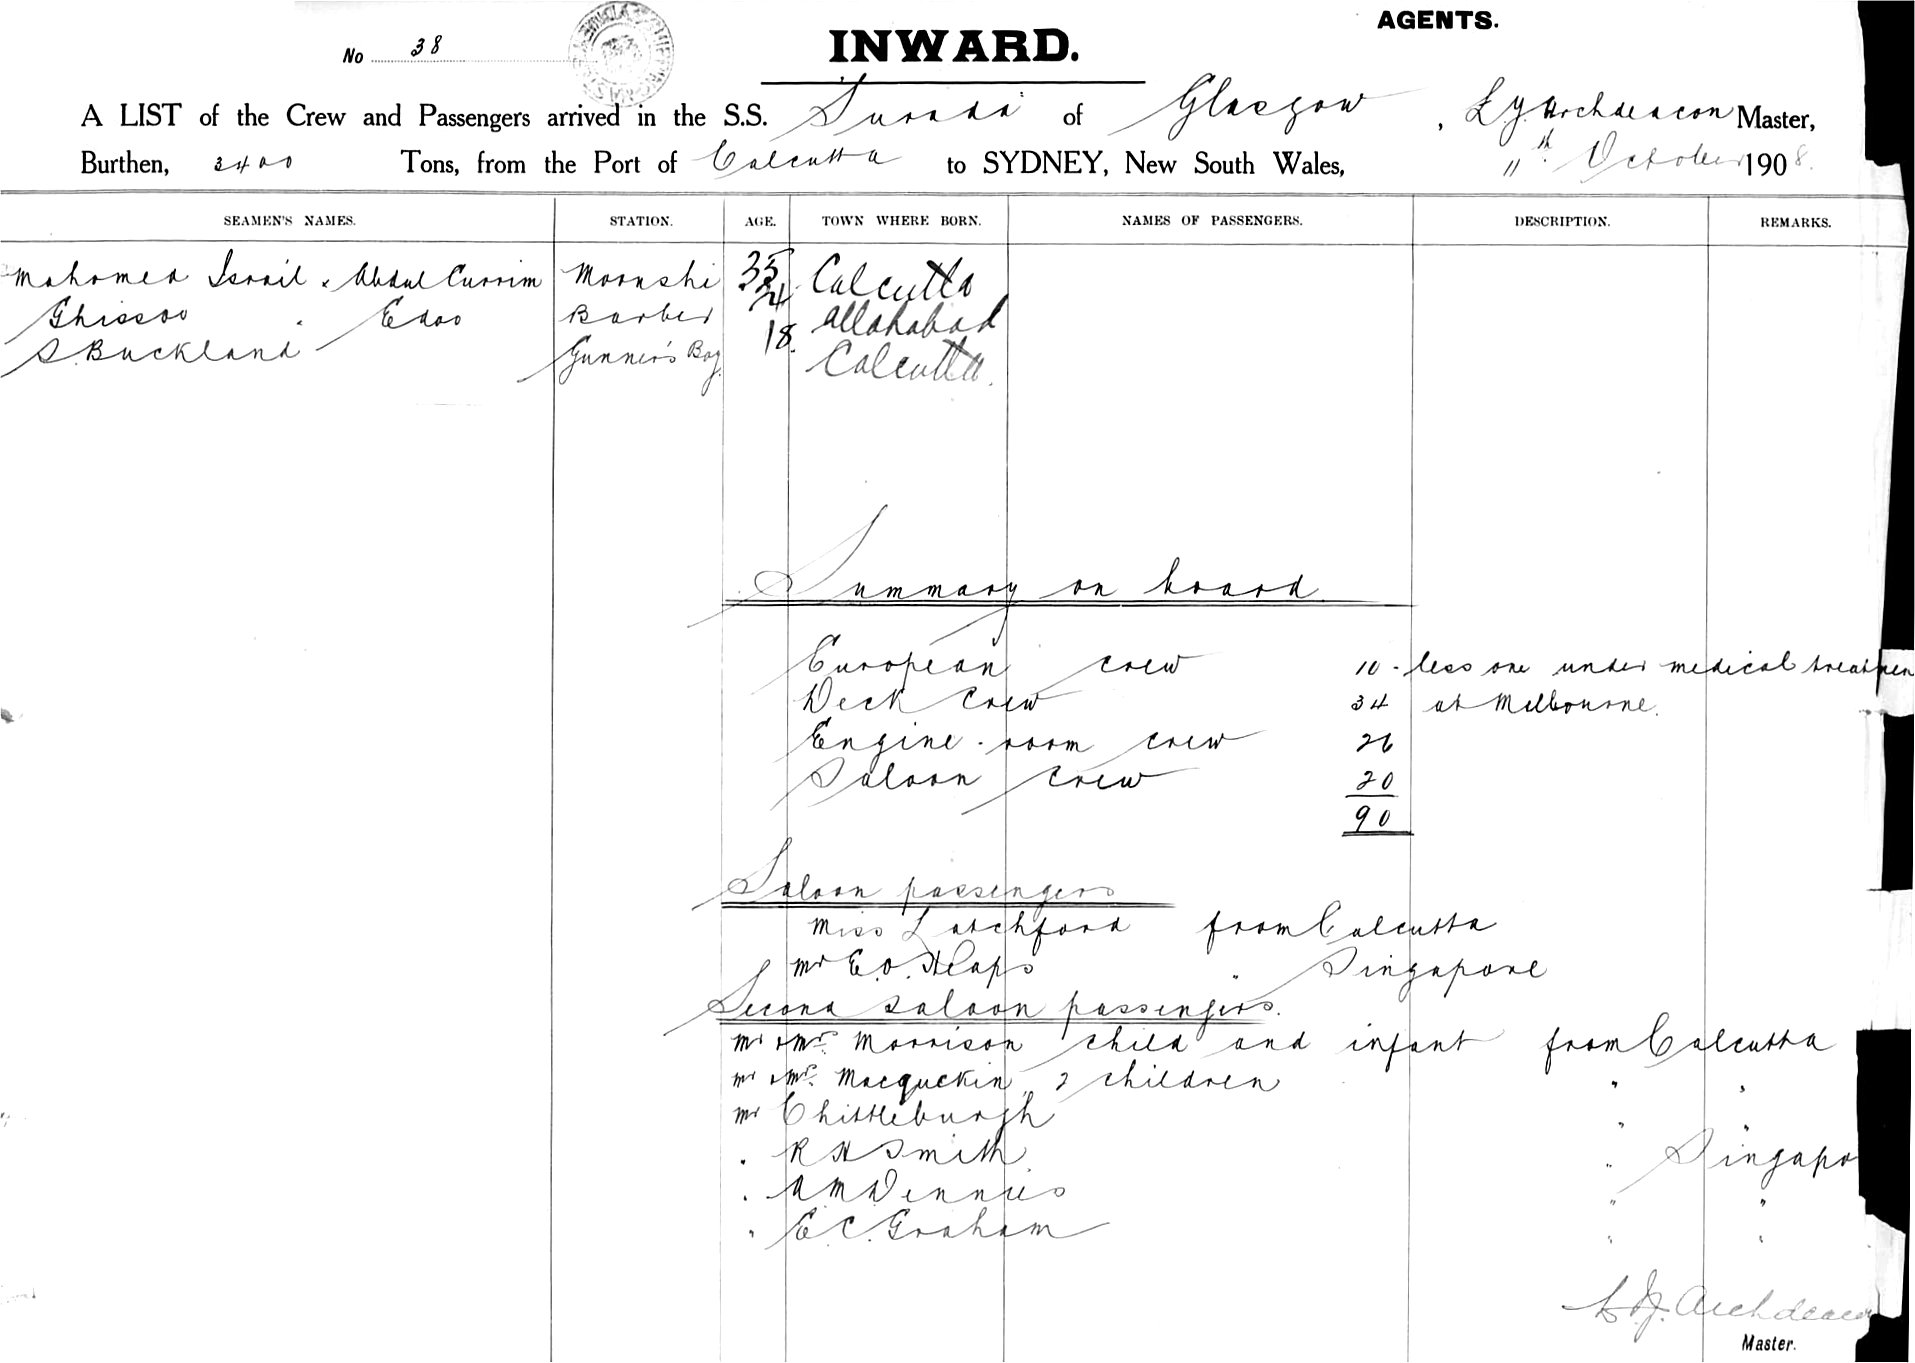 AGENTS.
No 38
INWARD.
A LIST of the Crew and Passengers arrived in the S.S. Surada of Glasgow, L. J. Archdeacon Master,
Burthen, 3400 Tons, from the Port of Calcutta to SYDNEY, New South Wales, 11th October 1908.
SEAMEN'S NAMES. STATION. AGE. TOWN WHERE BORN. NAMES OF PASSENGERS. DESCRIPTION. REMARKS.
Mahomed Israil . Abdul Currim Moonshi 35 Calcutta
Ghissoo . Edoo Barber 24 Allahabad
S. Buckland Gunner's Boy. 18. Calcutta.
Summary on board.
European crew 10 - less one under medical treatmen
Deck Crew 34 at Melbourne.
Engine-room crew 26
Saloon crew 20
90
Saloon passengers
Miss Latchford from Calcutta
Mr E. O. Heaps " Singapore
Second saloon passengers.
Mr & Mrs. Morrison child and infant from Calcutta
Mr & Mrs. Macquckin, 2 children " "
Mr Chittleburgh " "
" R H Smith " Singapo
" A M Dennis " "
" E. C. Graham " "
L. J. Archdeacon
Master.